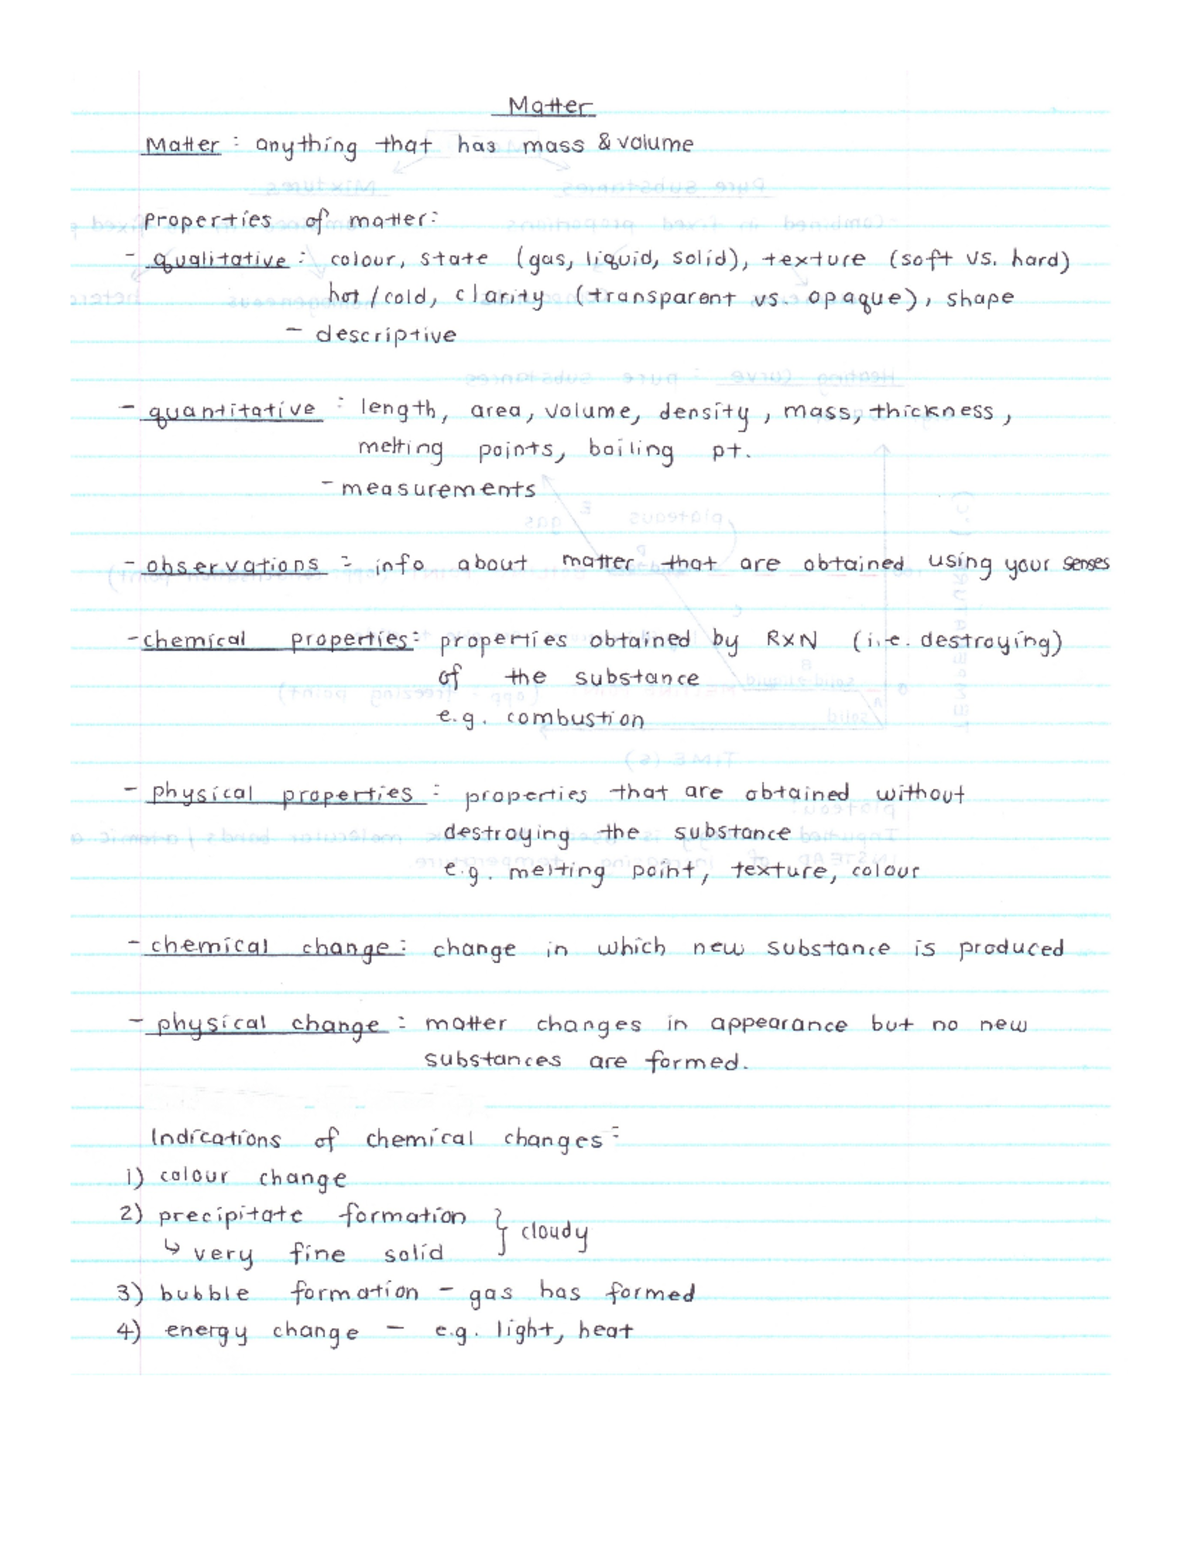 Matter
Matter : anything that has mass & volume
Properties of matter:
- qualitative : colour, state (gas, liquid, solid), texture (soft vs. hard)
hot / cold, clarity (transparent vs. opaque), shape
- descriptive
- quantitative : length, area, volume, density, mass, thickness,
melting points, boiling pt.
- measurements
- observations : info about matter that are obtained using your senses
- chemical properties: properties obtained by RXN (i.e. destroying)
of the substance
e.g. combustion
- physical properties : properties that are obtained without
destroying the substance
e.g. melting point, texture, colour
- chemical change: change in which new substance is produced
- physical change : matter changes in appearance but no new
substances are formed.
Indications of chemical changes:
1) colour change
2) precipitate formation } cloudy
↳ very fine solid
3) bubble formation - gas has formed
4) energy change - e.g. light, heat